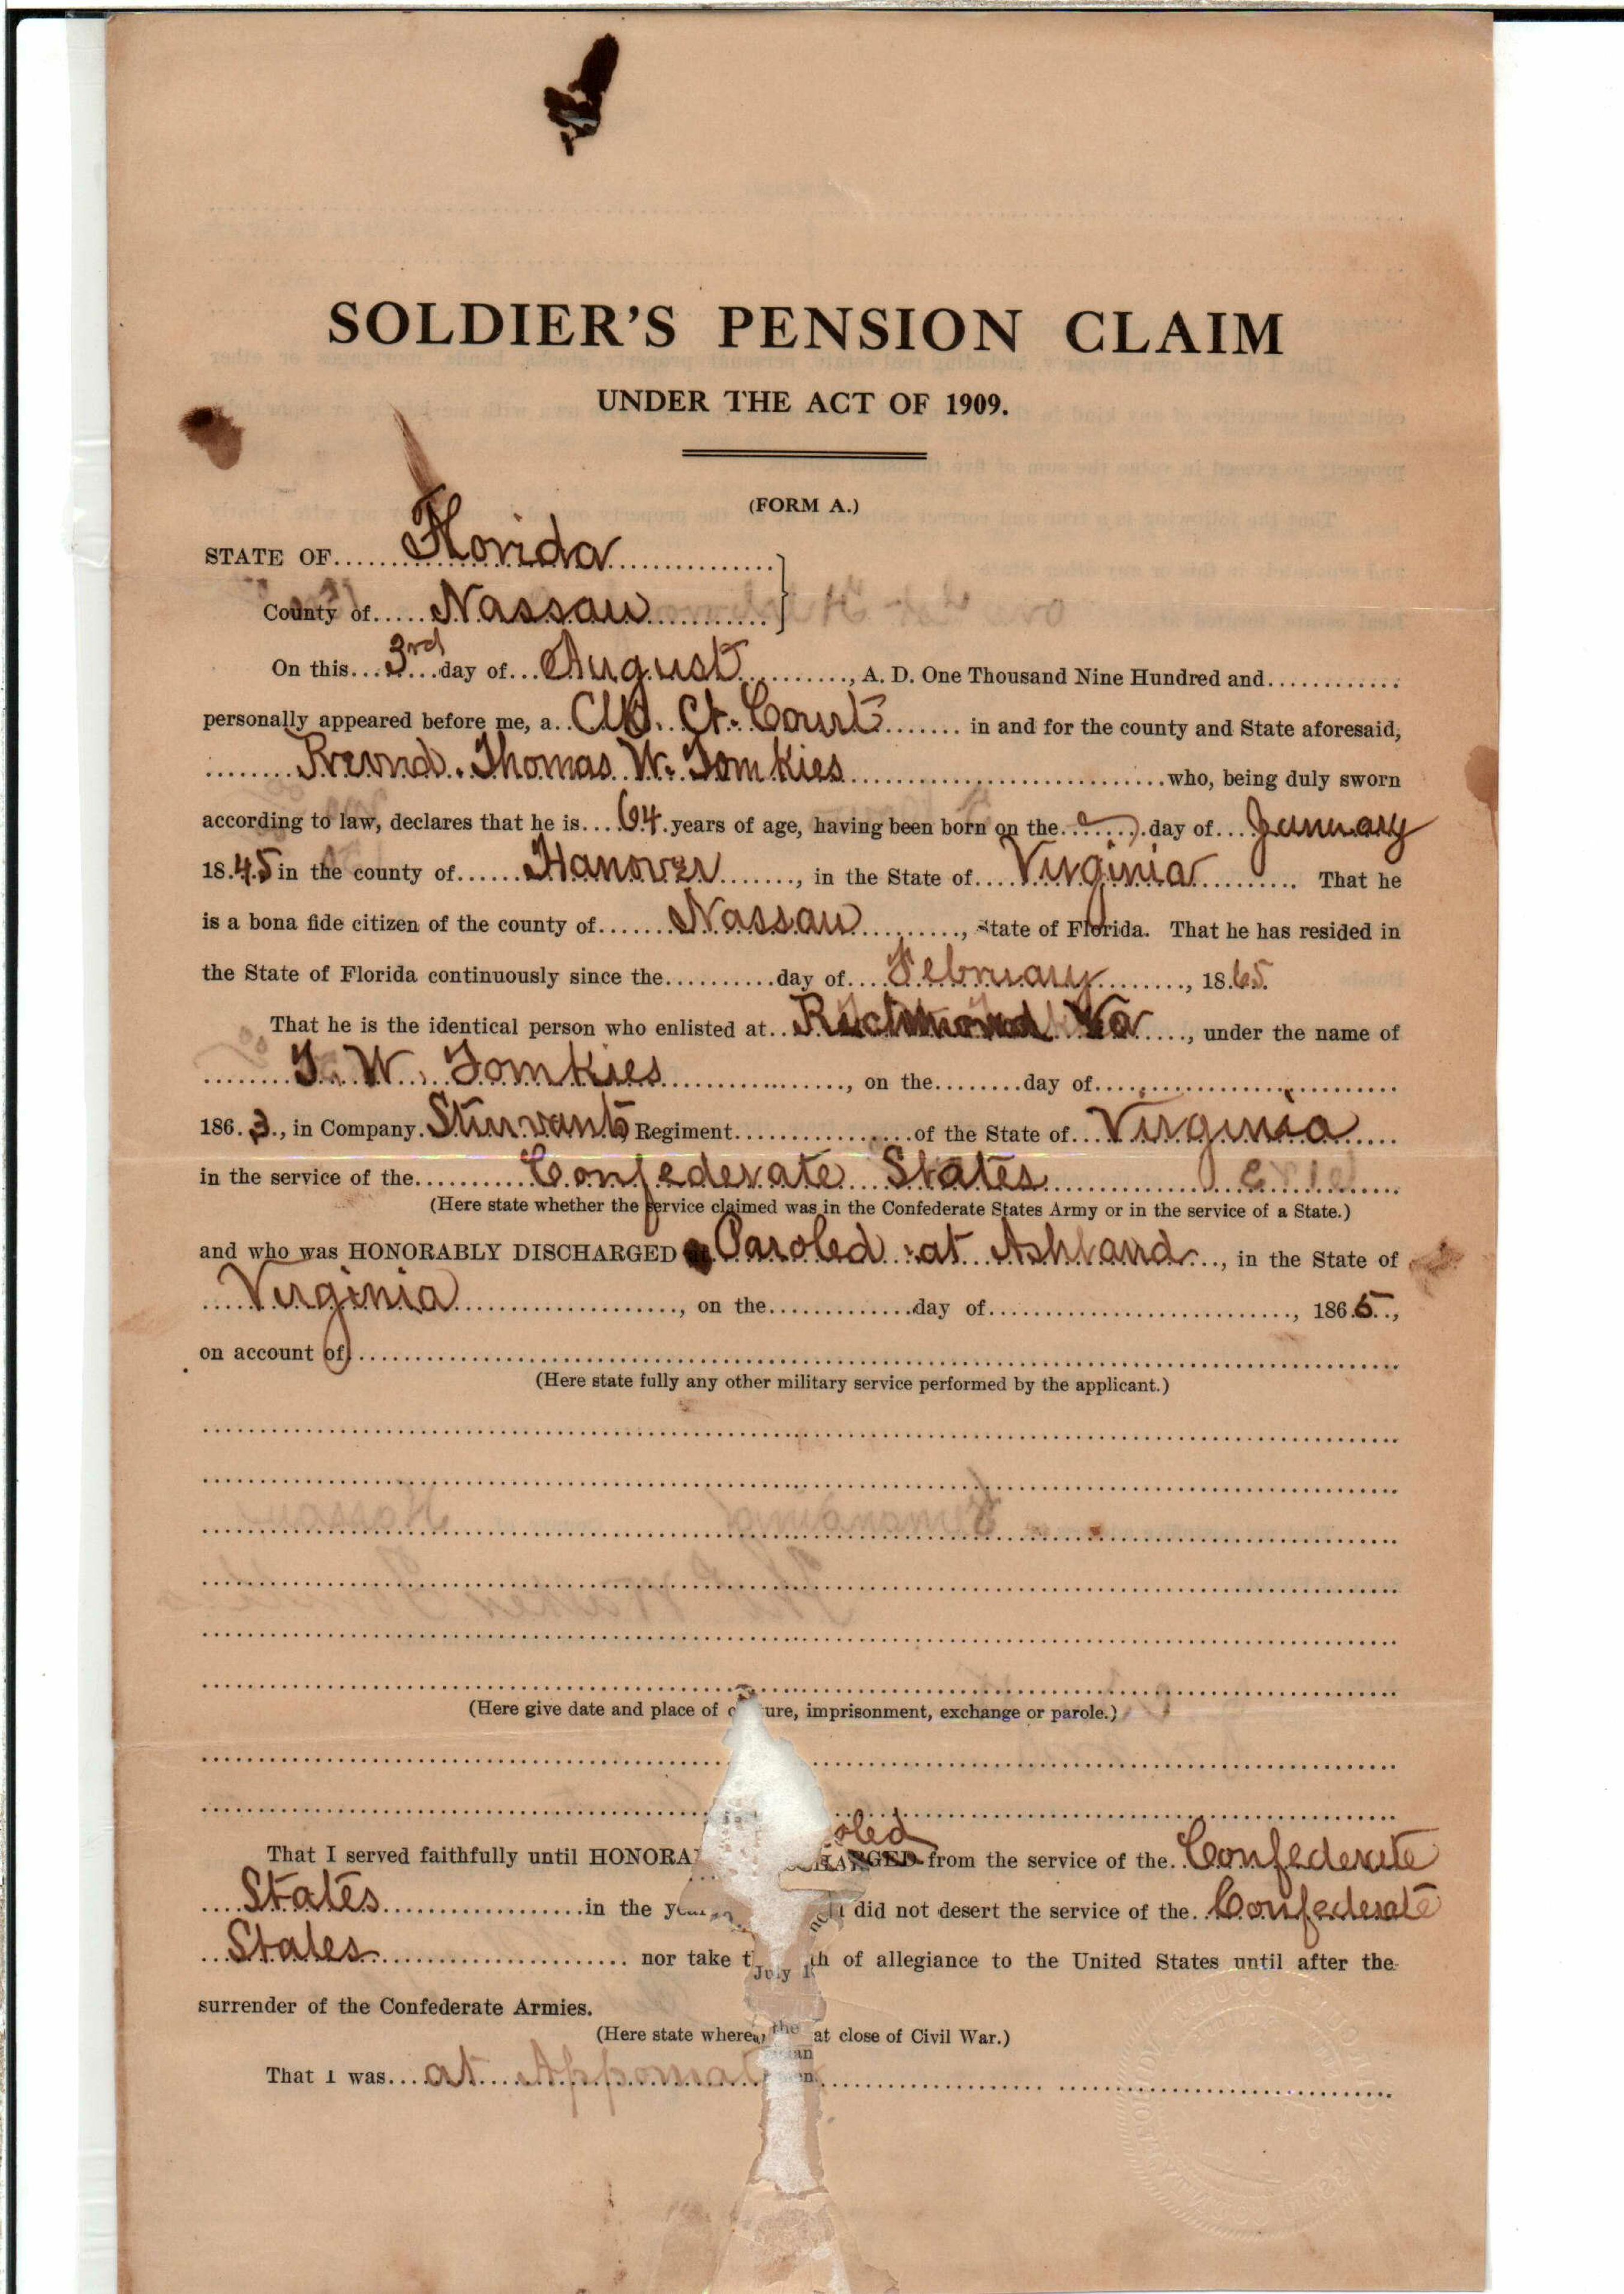 SOLDIER'S PENSION CLAIM
UNDER THE ACT OF 1909.
(FORM A.)
STATE OF Florida
County of Nassau
On this 3rd day of August, A. D. One Thousand Nine Hundred and
personally appeared before me, a Clk. Ct. Court in and for the county and State aforesaid,
Revnd. Thomas W. Tomkies who, being duly sworn
according to law, declares that he is 64 years of age, having been born on the day of January
1845 in the county of Hanover, in the State of Virginia. That he
is a bona fide citizen of the county of Nassau, State of Florida. That he has resided in
the State of Florida continuously since the day of February, 1865.
That he is the identical person who enlisted at Richmond Va, under the name of
T. W. Tomkies, on the day of
1863, in Company Sturvants Regiment of the State of Virginia
in the service of the Confederate States
(Here state whether the service claimed was in the Confederate States Army or in the service of a State.)
and who was HONORABLY DISCHARGED Paroled at Ashland, in the State of
Virginia, on the day of, 1865,
on account of
(Here state fully any other military service performed by the applicant.)
(Here give date and place of ure, imprisonment, exchange or parole.)
oled
That I served faithfully until HONORA RGED from the service of the Confederate
States in the did not desert the service of the Confederate
States nor take th of allegiance to the United States until after the
July 1
surrender of the Confederate Armies.
(Here state where the at close of Civil War.)
That I was at Appomat